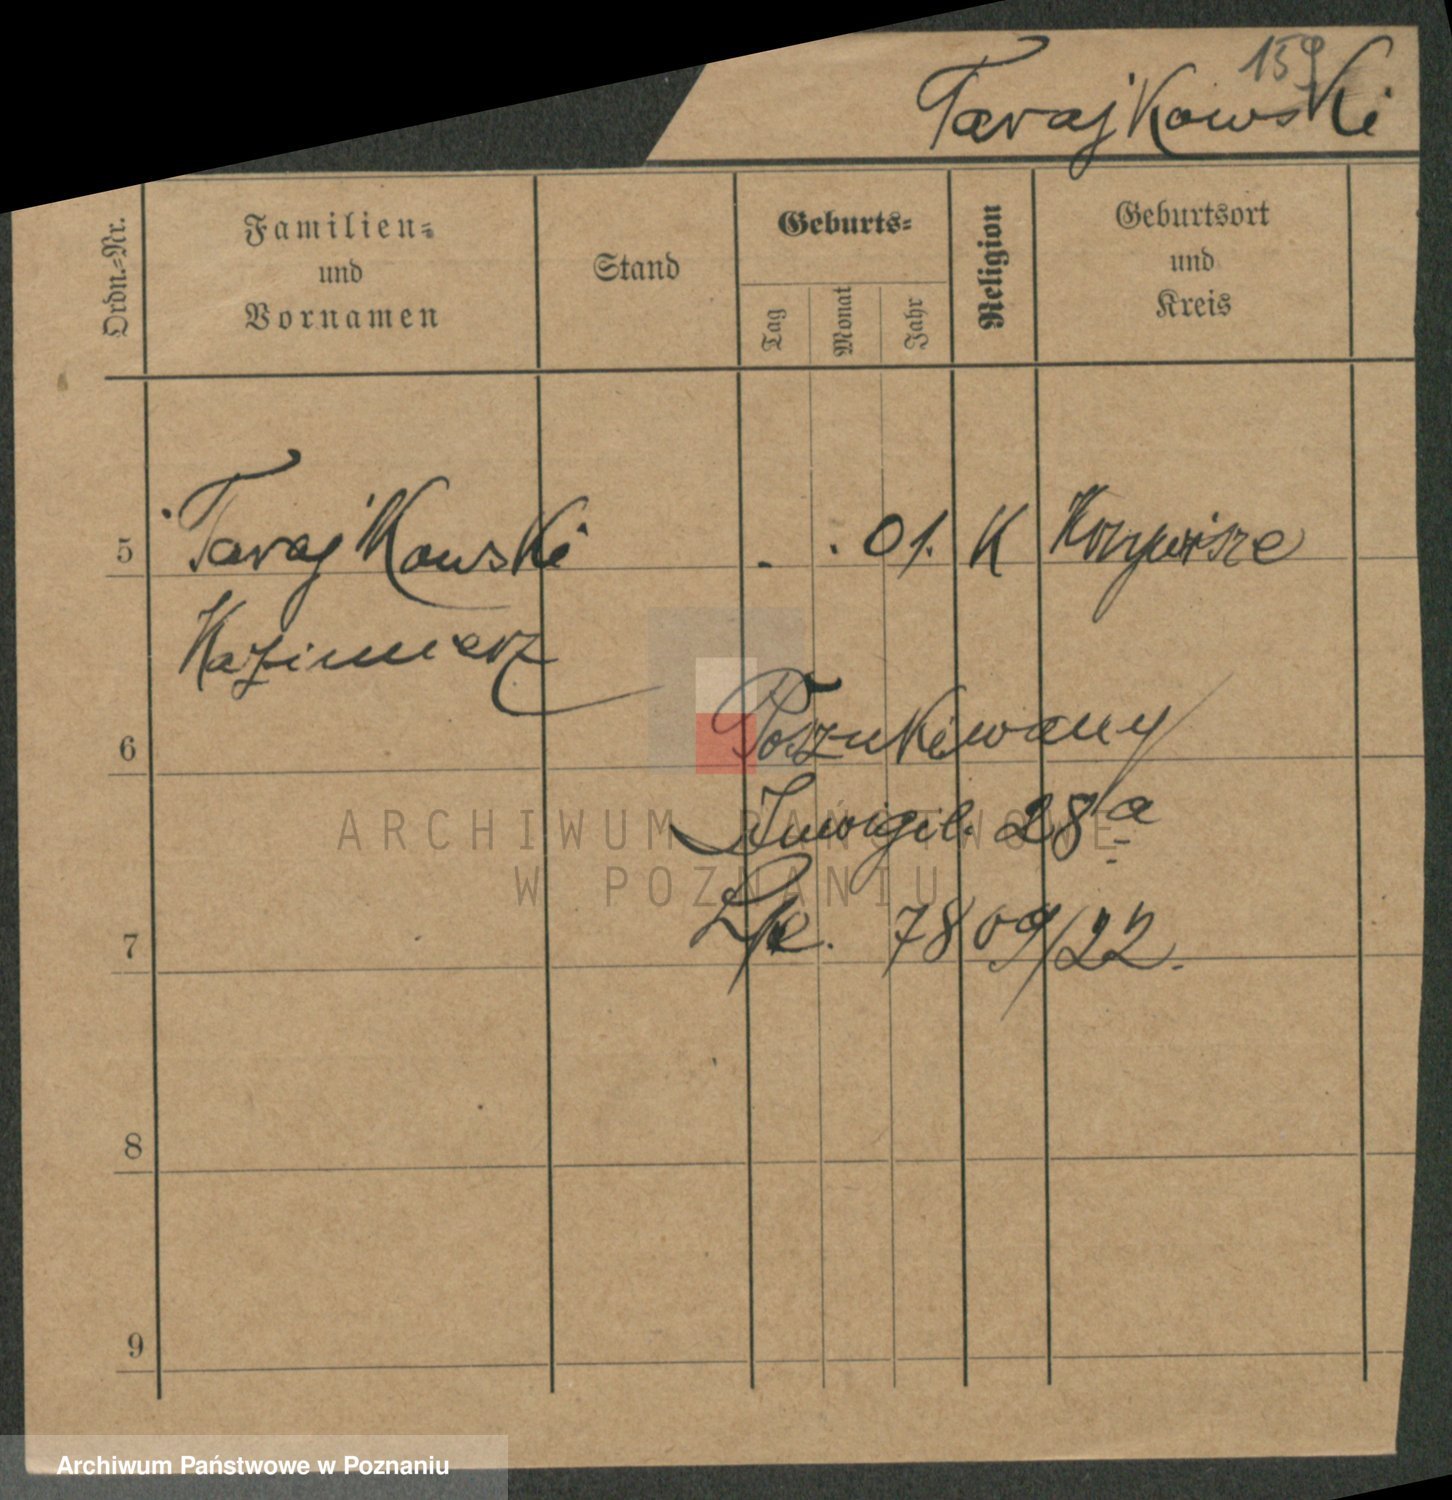 159
Tarajkowski
Ordn.-Nr.
Familien-
und
Vornamen
Stand
Geburts-
Tag
Monat
Jahr
Religion
Geburtsort
und
Kreis
5 Tarajkowski . . 01. K
Kazimierz
6 Poszukiwany
Inwigil. 28a
7 7809/22.
8
9
ARCHIWUM PAŃSTWOWE
W POZNANIU
Archiwum Państwowe w Poznaniu